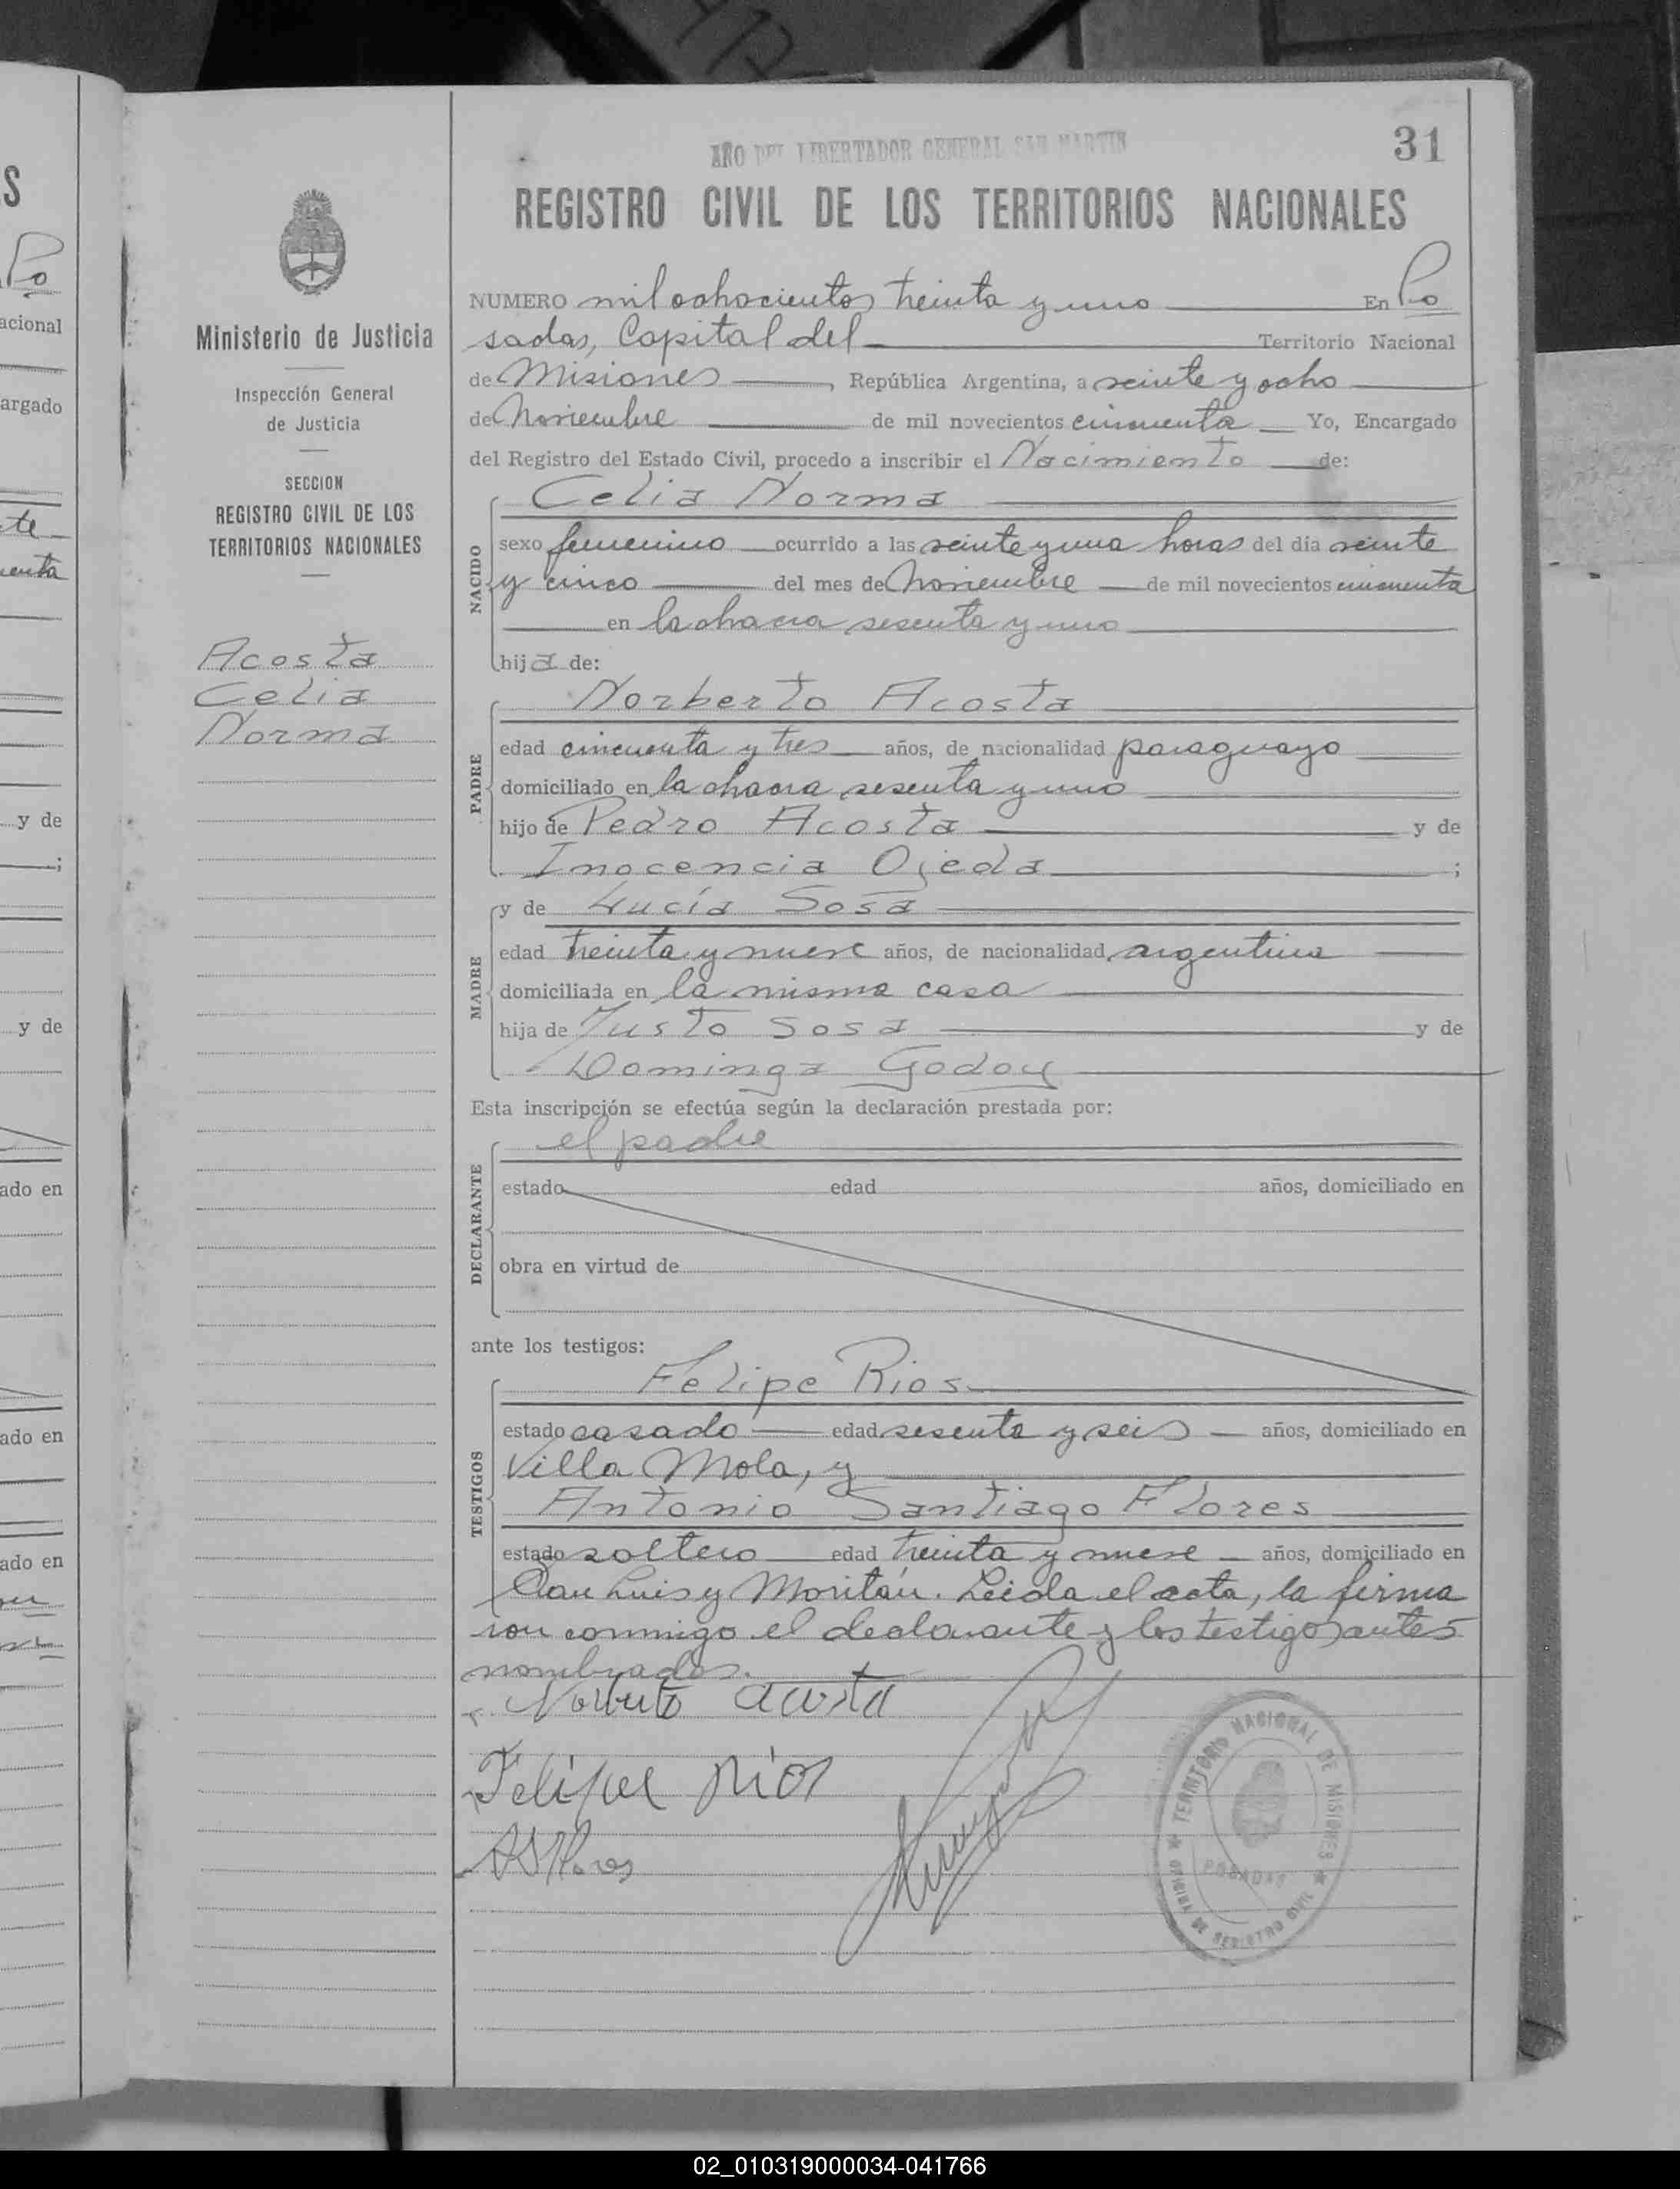 AÑO DEL LIBERTADOR GENERAL SAN MARTIN
31
REGISTRO CIVIL DE LOS TERRITORIOS NACIONALES
Ministerio de Justicia
Inspección General
de Justicia
SECCION
REGISTRO CIVIL DE LOS
TERRITORIOS NACIONALES
Acosta
Celia
Norma
NUMERO mil ochocientos treinta y uno En Po
sadas, Capital del Territorio Nacional
de Misiones, República Argentina, a veinte y ocho
de Noviembre de mil novecientos cincuenta Yo, Encargado
del Registro del Estado Civil, procedo a inscribir el Nacimiento de:
NACIDO
Celia Norma
sexo femenino ocurrido a las veinte y una horas del día veinte
y cinco del mes de Noviembre de mil novecientos cincuenta
en la chacra sesenta y uno
hija de:
PADRE
Norberto Acosta
edad cincuenta y tres años, de nacionalidad paraguayo
domiciliado en la chacra sesenta y uno
hijo de Pedro Acosta y de
Inocencia Ojeda ;
MADRE
y de Lucía Sosa
edad treinta y nueve años, de nacionalidad argentina
domiciliada en la misma casa
hija de Justo Sosa y de
Dominga Godoy
Esta inscripción se efectúa según la declaración prestada por:
DECLARANTE
el padre
estado edad años, domiciliado en
obra en virtud de
ante los testigos:
TESTIGOS
Felipe Rios
estado casado edad sesenta y seis años, domiciliado en
Villa Mola, y
Antonio Santiago Flores
estado soltero edad treinta y nueve años, domiciliado en
San Luis y Moritán. Leida el acta, la firma
ron conmigo el declarante y los testigos antes
nombrados.
Norberto Acosta
Felipe Rios
A S Flores
TERRITORIO NACIONAL DE MISIONES
POSADAS
DE REGISTRO CIVIL
S
Po
acional
argado
te
enta
y de
;
y de
ado en
ado en
ado en
02_010319000034-041766